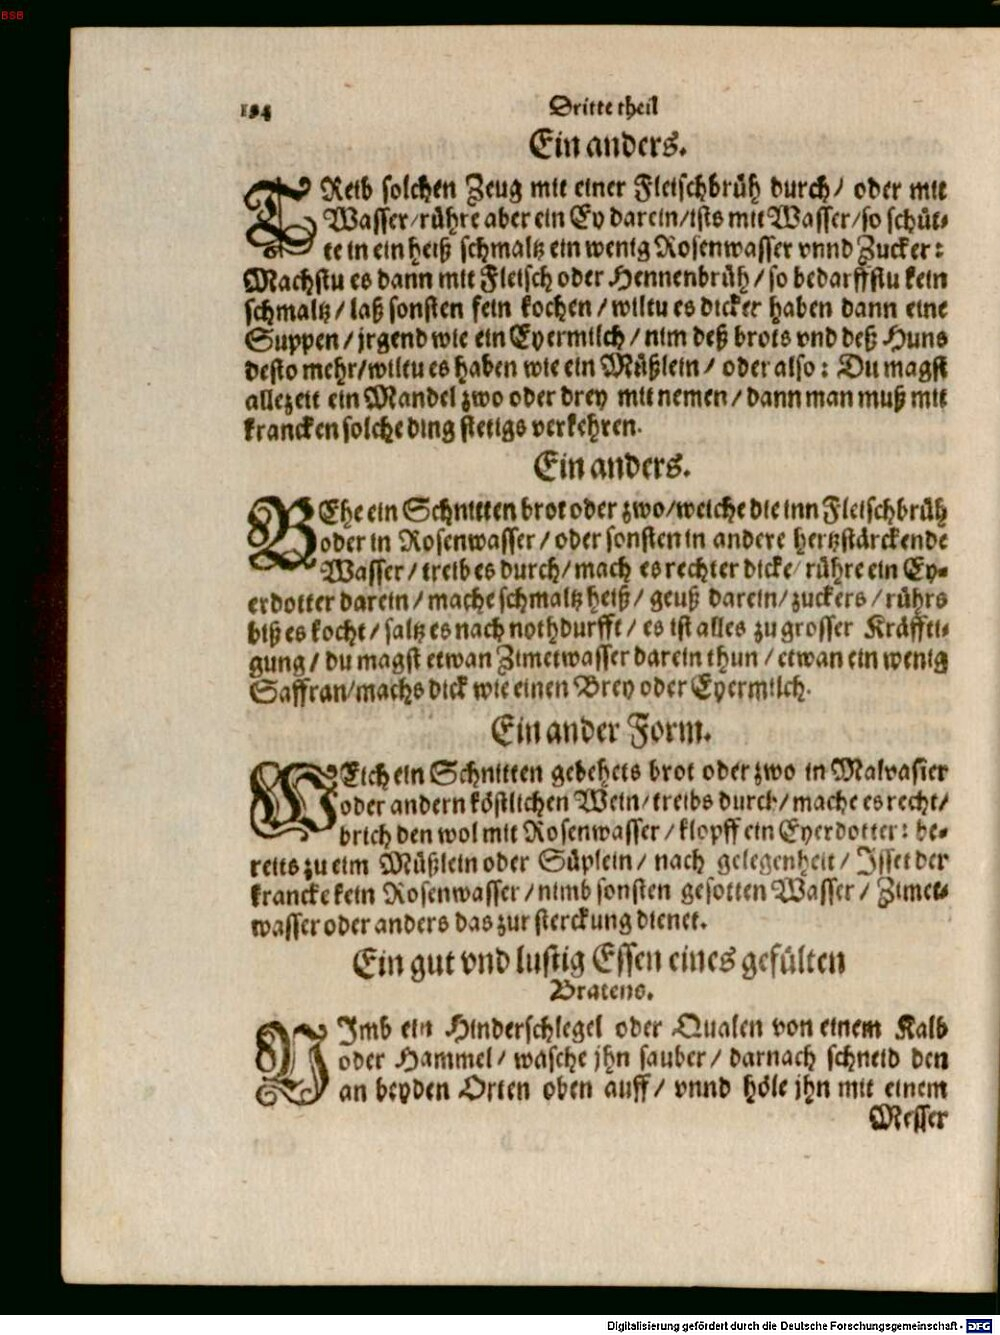 BSB
194 Dritte theil
Ein anders.
TReib solchen Zeug mit einer Fleischbrüh durch/ oder mit
Wasser/rühre aber ein Ey darein/ists mit Wasser/so schüt-
te in ein heiß schmaltz ein wenig Rosenwasser vnnd Zucker:
Machstu es dann mit Fleisch oder Hennenbrüh/ so bedarffstu kein
schmaltz/ laß sonsten fein kochen/ wiltu es dicker haben dann eine
Suppen/ jrgend wie ein Eyermilch/ nim deß brots vnd deß Huns
desto mehr/wiltu es haben wie ein Müßlein/ oder also: Du magst
allezeit ein Mandel zwo oder drey mit nemen/ dann man muß mit
krancken solche ding stetigs verkehren.
Ein anders.
BEhe ein Schnitten brot oder zwo/weiche die inn Fleischbrüh
oder in Rosenwasser/ oder sonsten in andere hertzstärckende
Wasser/ treib es durch/ mach es rechter dicke/ rühre ein Ey-
erdotter darein/ mache schmaltz heiß/ geuß darein/ zuckers/ rührs
biß es kocht/ saltz es nach nothdurfft/ es ist alles zu grosser Kräffti-
gung/ du magst etwan Zimetwasser darein thun/ etwan ein wenig
Saffran/machs dick wie einen Brey oder Eyermilch.
Ein ander Form.
WEich ein Schnitten gebehets brot oder zwo in Malvasier
oder andern köstlichen Wein/ treibs durch/ mache es recht/
brich den wol mit Rosenwasser/ klopff ein Eyerdotter: be-
reits zu eim Müßlein oder Süplein/ nach gelegenheit/ Isset der
krancke kein Rosenwasser/ nimb sonsten gesotten Wasser/ Zimet-
wasser oder anders das zur sterckung dienet.
Ein gut vnd lustig Essen eines gefülten
Bratens.
NImb ein Hinderschlegel oder Qualen von einem Kalb
oder Hammel/ wasche jhn sauber/ darnach schneid den
an beyden Orten oben auff/ vnnd höle jhn mit einem
Messer
Digitalisierung gefördert durch die Deutsche Forschungsgemeinschaft - DFG